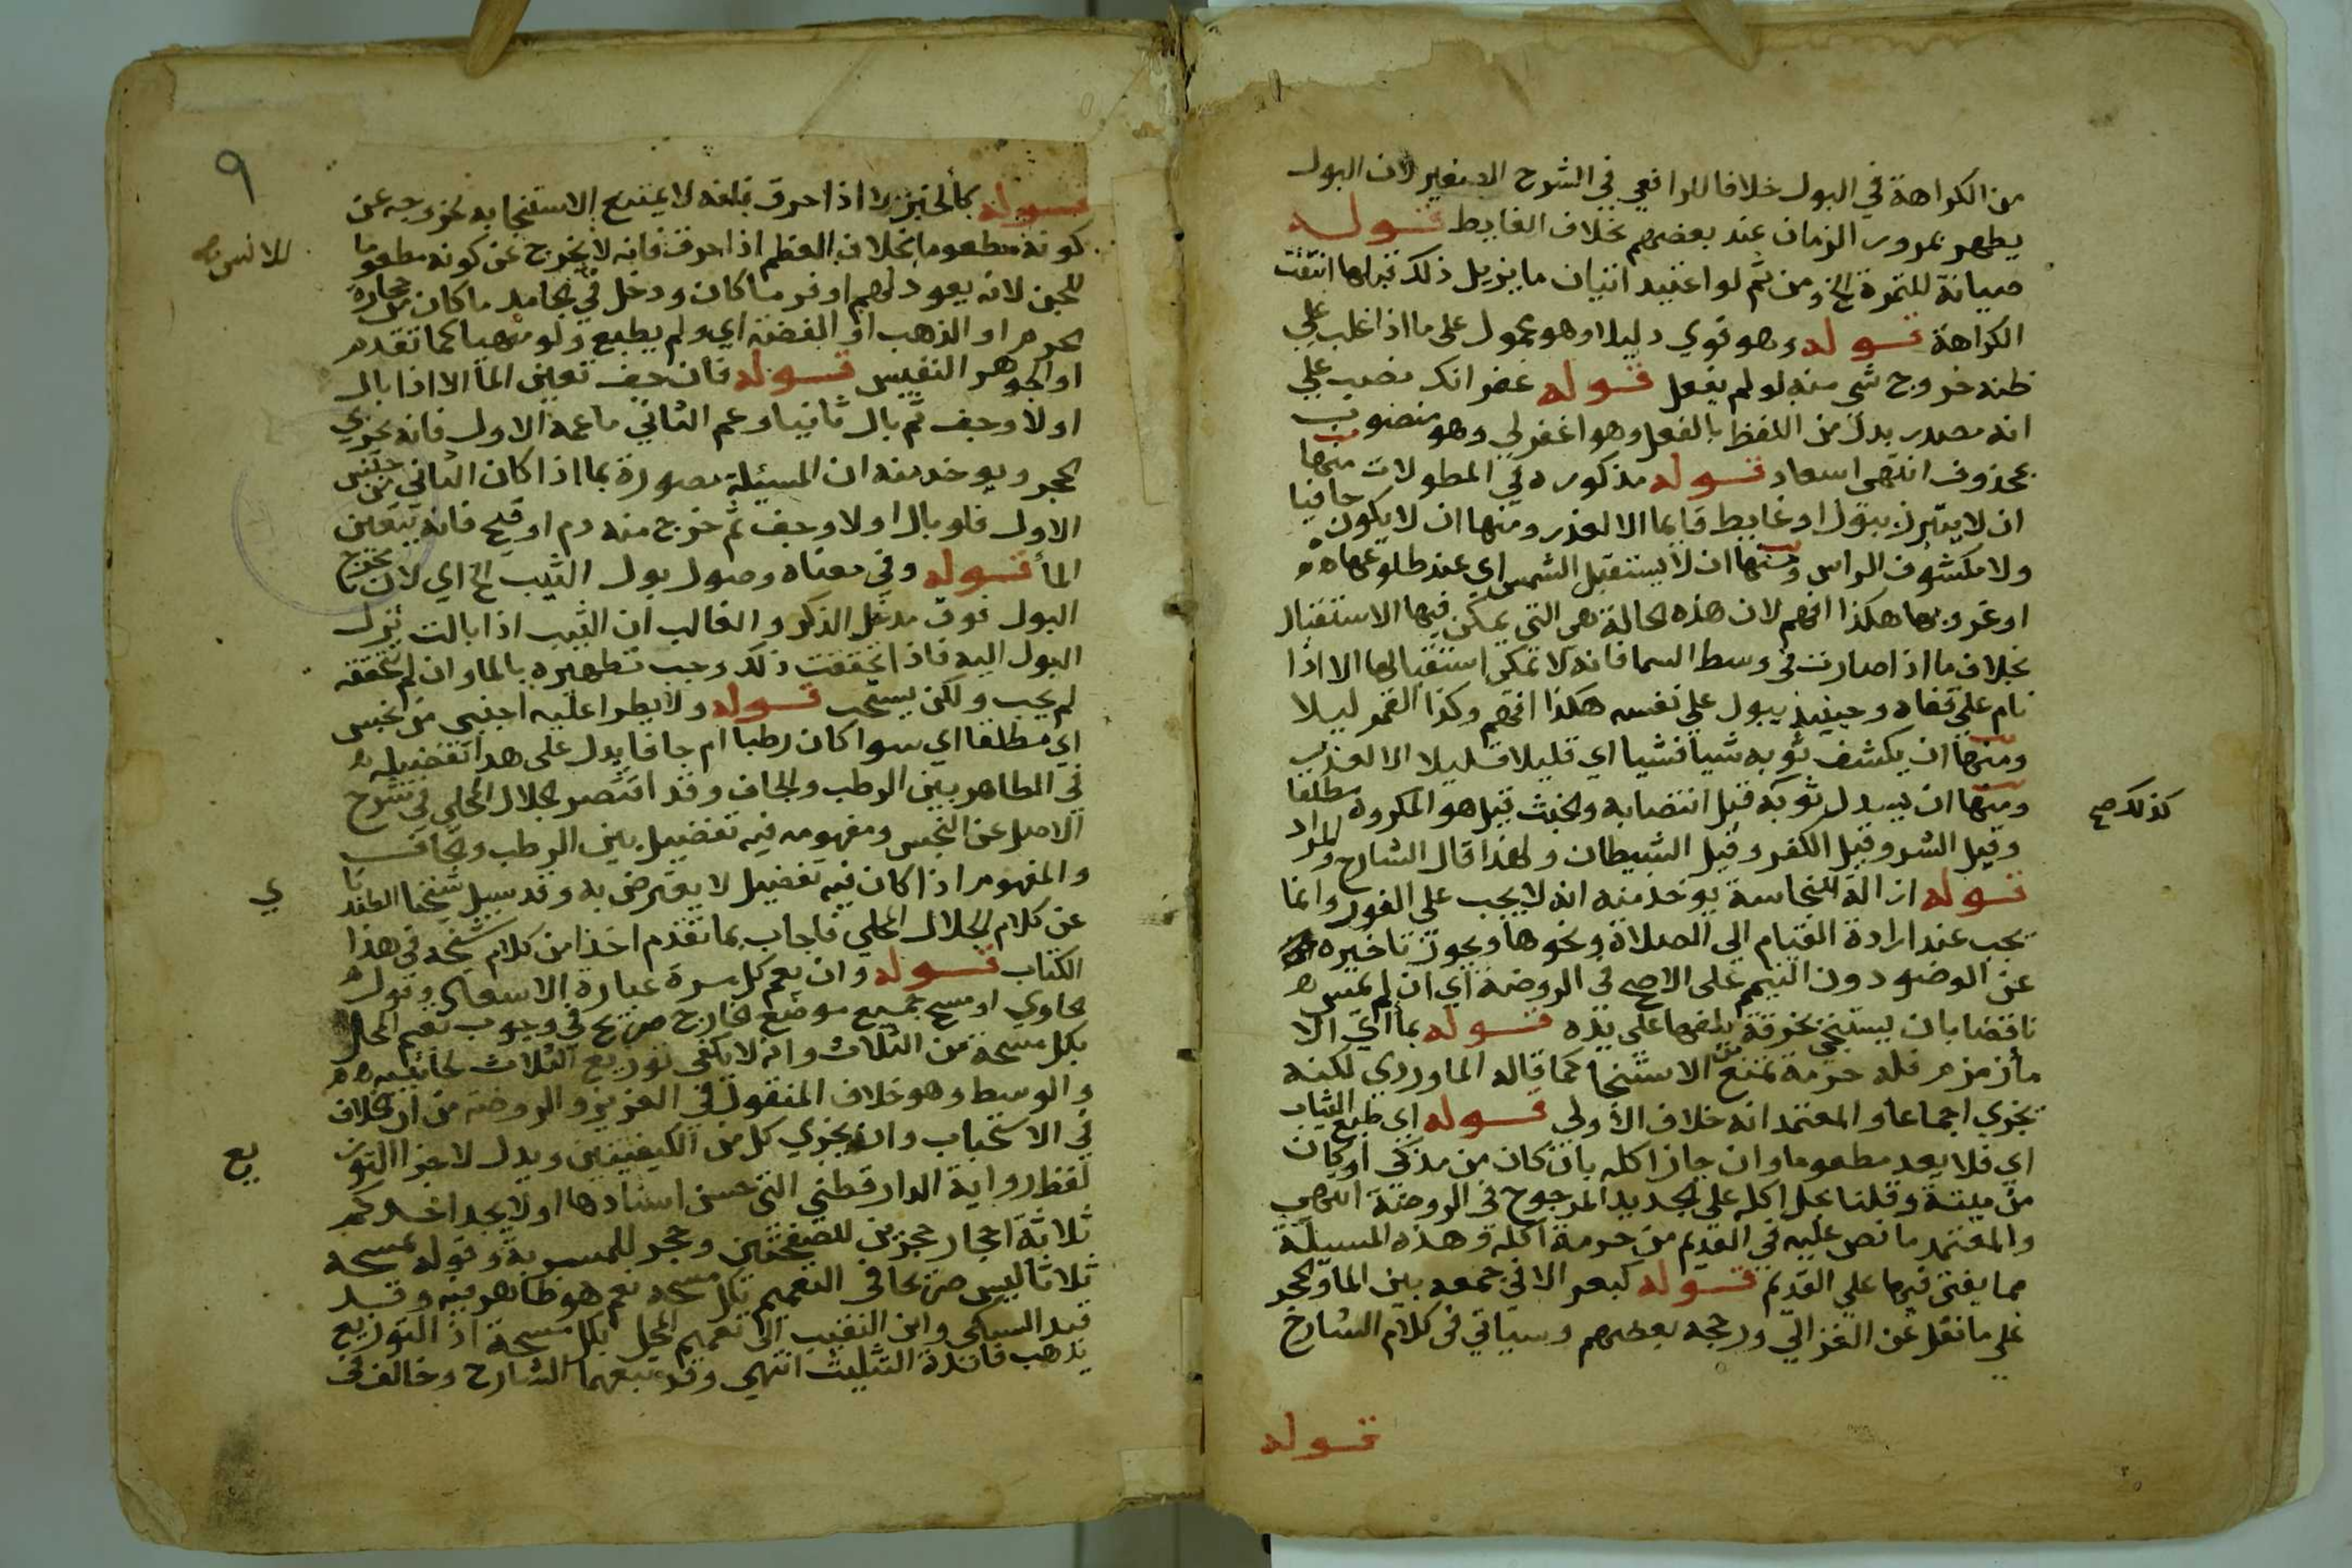 من الكراهة في البول خلافا للرافعي في الشرح الصغير لان البول
يطهر بمرور الزمان عند بعضهم بخلاف الغايط قوله
صيانة للثمرة الخ ومن ثم لو اعتيد اتيان ما يزيل ذلك قبلها انتفت
الكراهة قوله وهو قوي دليلا وهو محمول على ما اذا غلب علي
ظنه خروج شي منه لو لم يفعل قوله غفرانك نصب علي
انه مصدر بدل من اللفظ بالفعل وهو اغفر لي وهو منصوب
بمحذوف انتهى اسعاد قوله مذكوره في المطولات منها
ان لا يتبرز ببول او غايط قايما الا لعذر ومنها ان لا يكون حافيا
ولا مكشوف الراس ومنها ان لا يستقبل الشمس اي عند طلوعها
او غروبها هكذا افهم لان هذه الحالة هي التي يمكن فيها الاستقبال
بخلاف ما اذا صارت في وسط السما فانه لا تمكن استقبالها الا اذا
نام علي قفاه وحينيذ يبول علي نفسه هكذا افهم وكذا القمر ليلا
ومنها ان يكشف ثوبه شيا فشيا اي قليلا قليلا الا لعذر
ومنها ان يسدل ثوبه قبل انتصابه والخبث قيل هو المكروه مطلقا
كذلك صح
وقيل الشر وقيل الكفر وقيل الشيطان ولهذا قال الشارح والمراد
قوله ازالة النجاسة يوخذ منه انه لا يجب علي الفور وانما
يجب عند ارادة القيام الي الصلاة ونحوها ويجوز تاخيره
عن الوضو دون التيمم على الاصح في الروضة اي ان لم يمس
ناقضا بان يستنجي بخرقة يلفها على يده قوله بما اي الا
مأ زمزم فله حرمة تمنع من الاستنجا كما قاله الماوردي لكنه
يجزي اجماعا والمعتمد انه خلاف الاولى قوله اي طبع الثياب
اي فلا يعد مطعوما وان جاز اكله بان كان من مذكى او كان
من ميتة وقلنا بحل اكله علي الجديد المرجوح في الروضة انتهي
والمعتمد ما نص عليه في القديم من حرمة اكله وهذه المسيلة
مما يفتى فيها علي القديم قوله كبعر الا في جمعه بين الما والحجر
علي ما نقل عن الغزالي ورجحه بعضهم وسياتي في كلام الشارح
قوله
٩
قوله كالخبز لا اذا احرق فلعه لا يمتنع الاستنجا به لخروجه عن
كونه مطعوما بخلاف العظم اذا احرق فانه لا يخرج عن كونه مطعوما
للانس صح
للجن لانه يعود لهم اوفر ما كان ودخل في الجامد ما كان من حجارة
الحرم او الذهب او الفضة اي ولم يطبع ولو منهيا كما تقدم
او الجوهر النفيس قوله فان جف تعين الما الا اذا بال
اولا وجف ثم بال ثانيا وعم الثاني ما عمه الاول فانه يجزي
الحجر ويوخذ منه ان المسيلة مصورة بما اذا كان الثاني من جنس
الاول فلو بال اولا وجف ثم خرج منه دم او قيح فانه يتعين
الما قوله وفي معناه وصول بول الثيب الخ اي لان مخرج
البول فوق مدخل الذكر والغالب ان الثيب اذا بالت نزل
البول اليه فاذا تحققت ذلك وجب تطهيره بالما وان لم تتحققه
لم يجب ولكن يستحب قوله ولا يطرا عليه اجنبي من نجس
اي مطلقا اي سوا كان رطبا ام جافا يدل على هذا تفضيله
في الطاهر بين الرطب والجاف وقد اقتصر الجلال المحلي في شرح
الاصل عن النجس ومفهومه فيه تفضيل بين الرطب والجاف
والمفهوم اذا كان فيه تفضيل لا يعترض به وقد سيل شيخنا
عن كلام الجلال المحلي فاجاب بما تقدم اخذا من كلام شيخه في هذا
ي
الكتاب قوله وان يعم كل مرة عبارة الاسعاد وقول
الحاوي او مسح جميع موضع الخارج صريح في وجوب تعميم المحل
بكل مسحة من الثلاث وانه لا يكفي توزيع الثلاث لجانبيه
والوسط وهو خلاف المنقول في العزيز والروضة من ان الخلاف
في الاستحباب وانه يجزي كل من الكيفيتين ويدل لاجزا التوز
يع
لفظ رواية الدارقطني التي حسن اسنادها اولا يجد احدكم
ثلاثة احجار حجرين للصفحتين وحجر للمسربة وقوله بمسحه
ثلاثا ليس صريحا في التعميم بكل مسحه نعم هو ظاهر فيه وقد
السبكي وابن النقيب الى تعميم المحل بكل مسحة اذ التوزيع
يذهب فائدة التثليث انتهي وقد تبعهما الشارح وخالف في